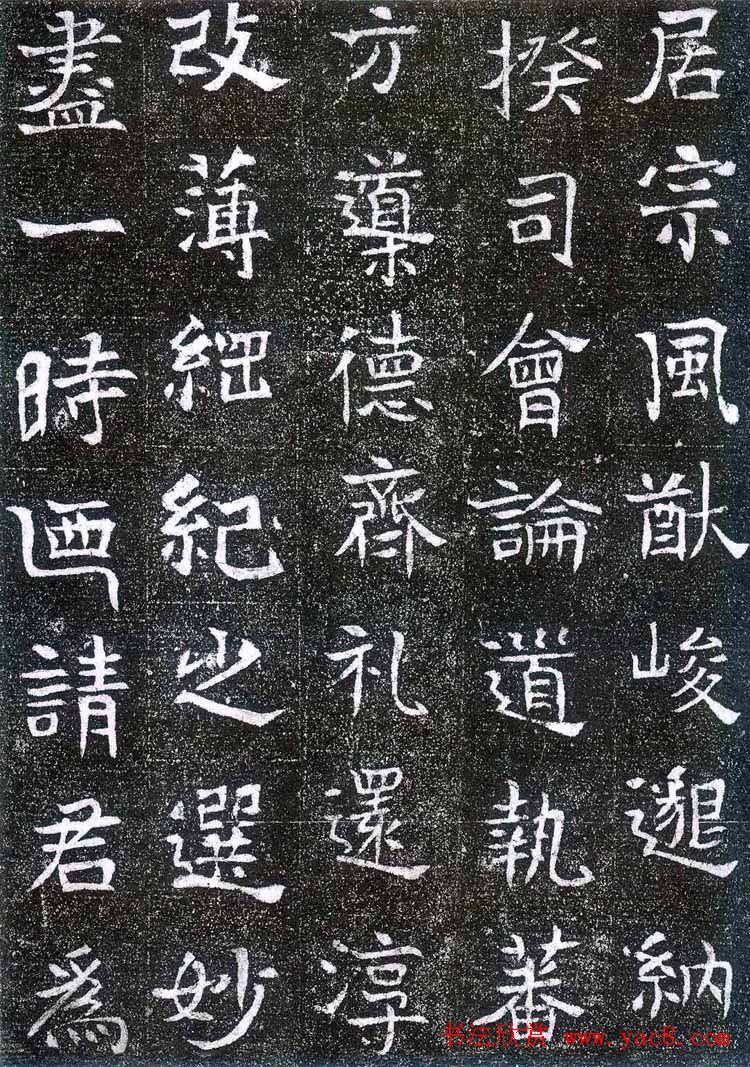 居宗風猷峻邈納
揆司會論道執蕃
方導德齊礼還淳
改薄綱紀之選妙
盡一時迺請君爲
书法欣赏 www.yac8.com